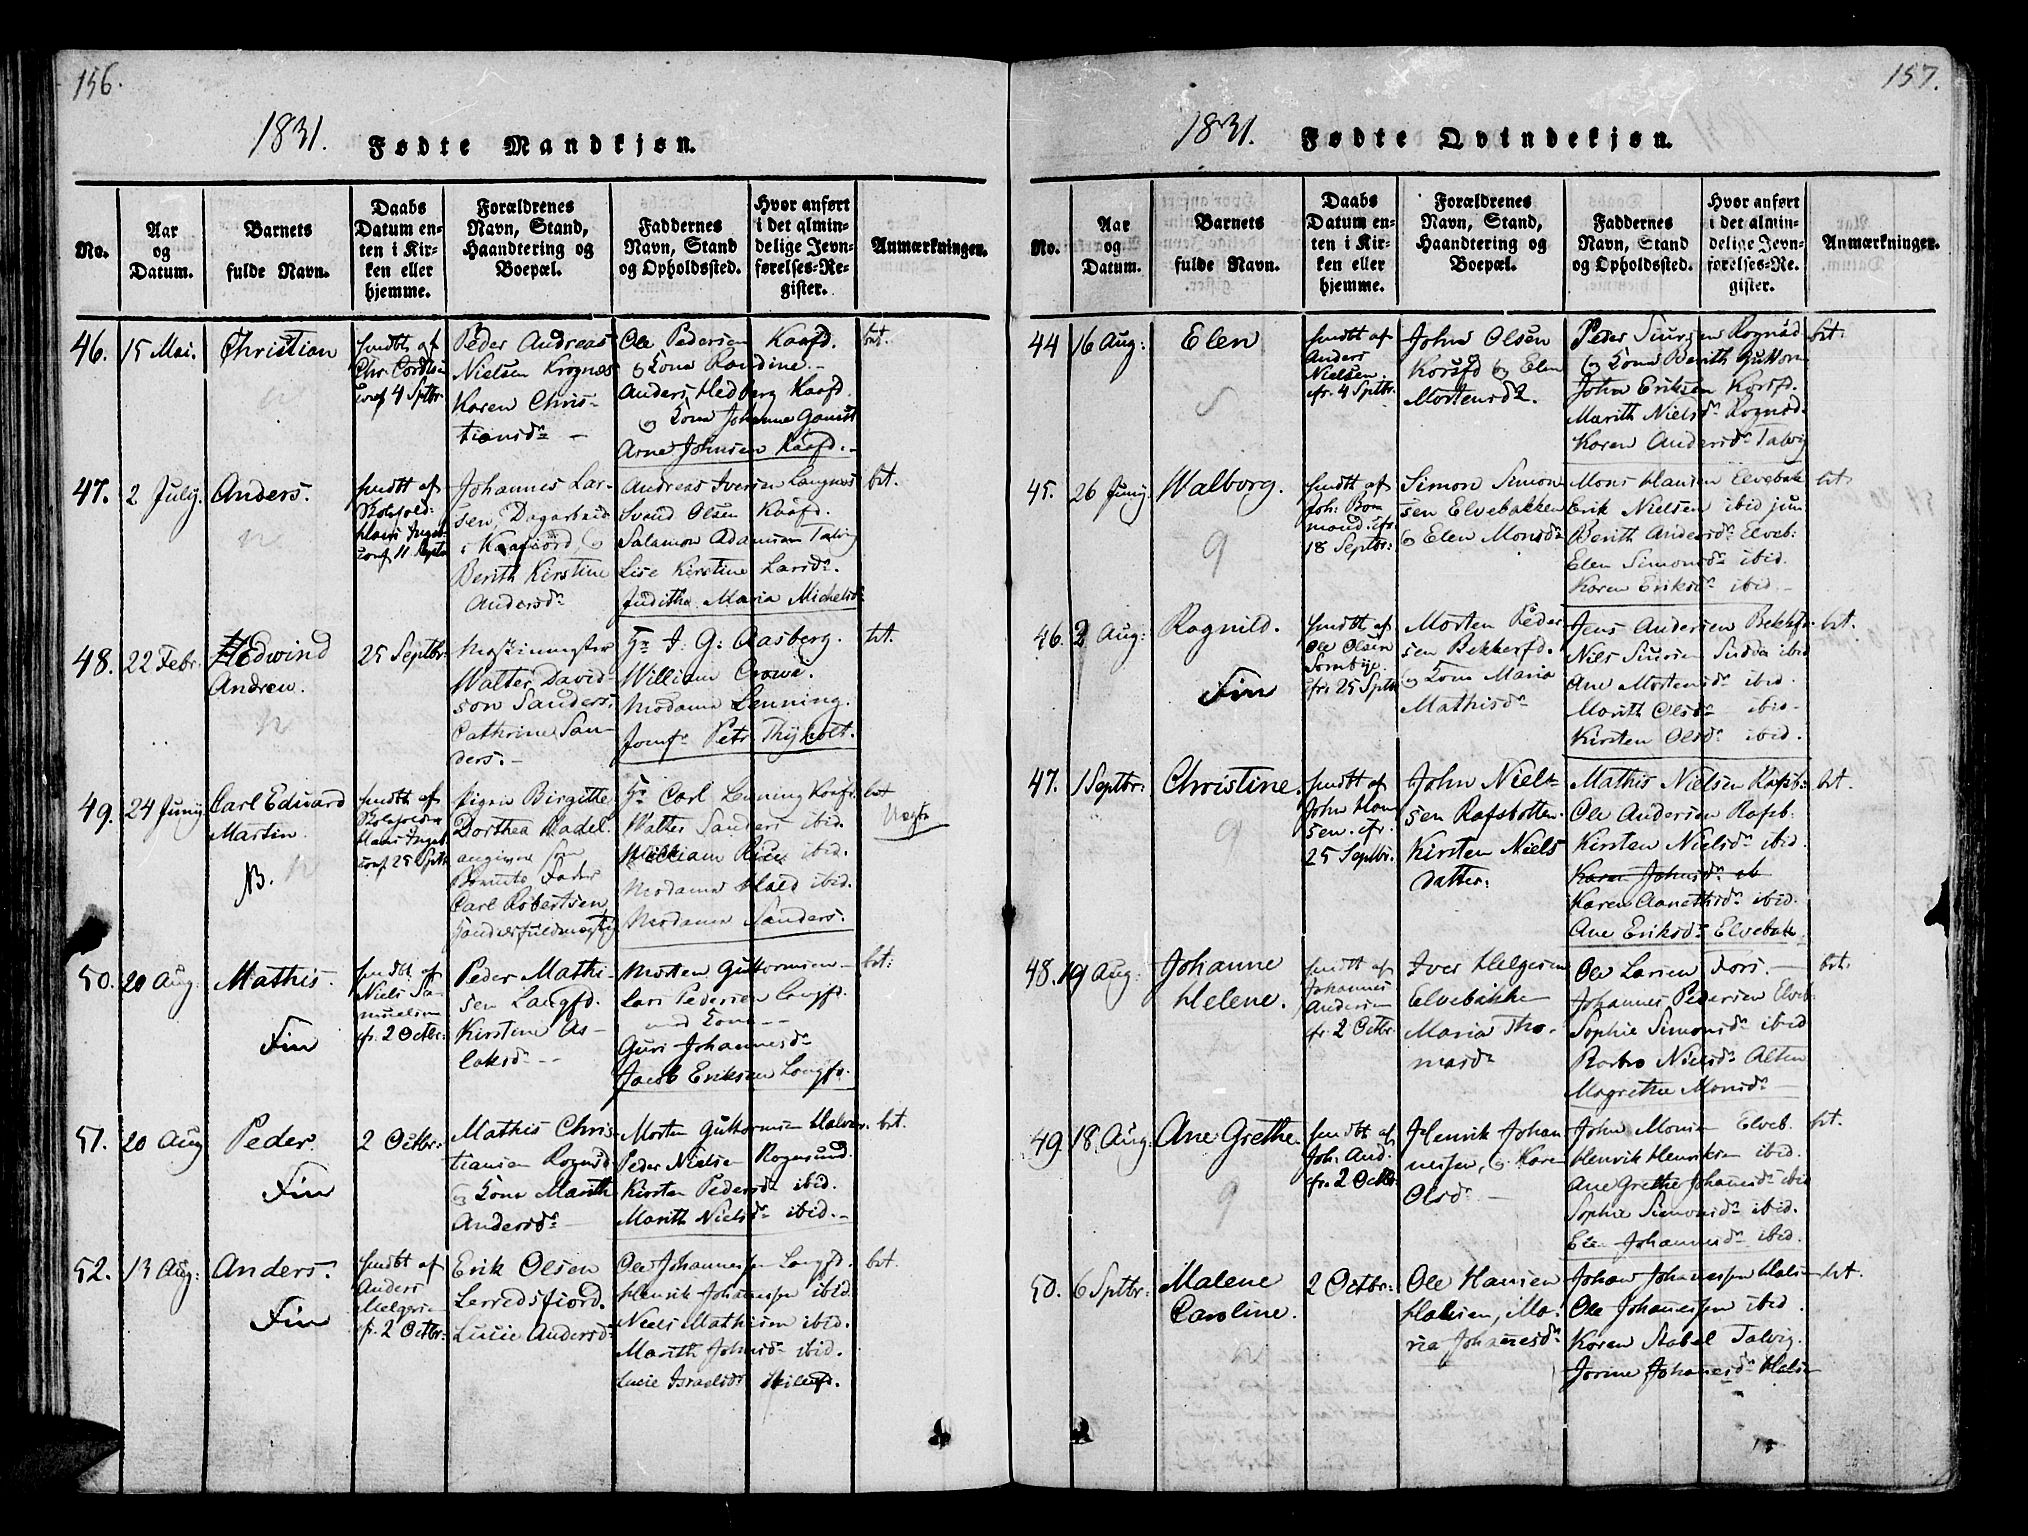 156.
1831. Fødte Mandkjøn.
No.
Aar og Datum.
Barnets fulde Navn.
Daabs Datum enten i Kirken eller hjemme.
Forældrenes Navn, Stand, Haandtering og Boepæl.
Faddernes Navn, Stand og Opholdssted.
Hvor anført i det almindelige Jevnførelses-Register.
Anmærkningen.
46. 15 Mai. Christian
hmdbt af
Chr. Cordtsen
conf 4 Sptbr.
Peder Andreas
Nielsen Krognæs
Karen Chris-
tiansdr –
Ole Pedersen Kaafd.
og Kona Randine –
Anders Hedberg Kaafd.
og Kona Johanne
Arne Johnsen Kaafd. –
brt.
47. 2 July. Anders.
hmdbt af
Hans
conf 11 Septbr
Johannes Lar-
sen, Dagarbeid
i Kaafiord, og
Berith Kirstine
Andersdr
Andreas Iversen Langnes
Svend Olsen Kaafd.
Salamon Adamsen Talvig
Lise Kirstine Larsdr.
Juditha Maria Michelsdr
brt.
48. 22 Febr. Hedwind
Andrew.
25 Septbr.
Maskinmester
Walter David-
son Sanders,
Cathrine San-
ders. –
Hr J. G. Aasberg.
William Crowe.
Madame Lenning.
Jomfr Petr. Thyholt.
brt.
49. 24 Juny Carl Eduard
Martin.
N.
hmdbt af
Hans
conf 25 Sptbr
Pigen Birgitte
Dorthea Nadel
angiven som
Barnets Fader
Carl Robertsen
Handelsfuldmægtig
Hr Carl Lenning Kaafd.
Walter Sanders ibid.
William Rice ibid.
Madame ibid.
Madame Sanders.
brt
Uægte
50. 20 Aug. Mathis.
Fin
hmdbt af
Niels Sa-
muelsen
cfr. 2 Octbr.
Peder Mathi-
sen Langfd.
Kirstine As-
laksdr –
Morten Guttormsen –
Lars Pedersen Langfd.
med Kona –
Guri Johannesdr
Jacob Eriksen Langfd.
brt.
51. 20 Aug Peder.
Fin
2 Octbr.
Mathis Chris-
tiansen Rognsd
og Kona Marith
Andersdr –
Morten Guttormsen
Peder Nielsen Rognsund.
Kirsten Pedersdr ibid.
Marith Nielsdr ibid. –
brt.
52. 13 Aug. Anders.
Fin
hmdbt af
Anders
Helgesen
cfr. 2 Octbr.
Erik Olsen
Lerredsfiord.
Lucie Andersdr
Ole Johannessen Langfd.
Henrik Johannessen ibid.
Niels Mathisen ibid.
Marith Johnsdr ibid.
Lucie Israelsdr
brt.
157.
1831. Fødte Qvindekjøn.
No.
Aar og Datum.
Barnets fulde Navn.
Daabs Datum enten i Kirken eller hjemme.
Forældrenes Navn, Stand, Haandtering og Boepæl.
Faddernes Navn, Stand og Opholdssted.
Hvor anført i det almindelige Jevnførelses-Register.
Anmærkninger.
44 16 Aug. Elen
hmdbt af
Anders
Nielsen.
cfr. 4 Sptbr.
John Olsen
Korsfd og Elen
Mortensdr.
Peder Siursen Rognsd
og Kona Berith Guttorm
John Eriksen Korsfd.
Marith Nielsdr Rognsd
Karen Andersdr Talvig
brt.
45. 26 Juny. Walborg.
hmdbt af
Joh.
cfr.
18 Septbr.
Simon Simon-
sen Elvebakken
og Elen Monsdr
Mons Hansen Elvebak
Erik Nielsen ibid jun.
Berith Andersdr Elveb.
Elen Simonsdr ibid.
Karen Eriksdr ibid. –
brt.
46. 2 Aug. Ragnild.
Fin
hmdbt af
Ole Olsen
cfr. 25 Sptbr
Morten Peder
sen Bekkerfd.
og Kona Maria
Mathisdr
Jens Andersen Bekkfr
Nils Siursen ibid
Ane Mortensdr ibid.
Marith Olsdr ibid.
Kirsten Olsdr ibid.
brt.
47. 1 Septbr. Christine.
hmdbt af
John Han
sen. cfr.
25 Septbr.
John Niel-
sen Rafsbotten
Kirsten Niels
datter.
Mathis Nielsen Rafsb.
Ole Andersen Rafsb.
Kirsten Nielsdr ibid.
Karen Johnsdr ib
Karen Aanethsdr ibid.
Ane Eriksdr Elvebak.
brt.
48. 19 Aug. Johanne
Helene.
hmdbt af
Johannes
Andersen
cfr. 2 Octbr.
Iver Helgesen
Elvebakken
Maria Tho-
masdr
Ole Larsen –
Johannes Pedersen Elveb.
Sophie Simonsdr ibid
Barbro Nielsdr Alten
Magrethe Monsdr –
brt.
49. 18 Aug. Ane Grethe.
hmdbt af
Joh. And.
cfr. 2 Octbr.
Henrik Johan
nessen, og Karen
Olsdr –
John Monsen Elveb.
Henrik Henriksen ibid.
Ane Grethe Johannesdr ibid
Sophie Simonsdr ibid.
Johannesdr ibid.
brt.
50. 6 Sptbr. Malene
Caroline.
2 Octbr.
Ole Hansen
Halsen, Ma-
ria Johannesdr
Johan Johannessen Halsen
Ole Johannessen ibid.
Karen Stabel Talvig.
Jorine Johannesdr Halsen
brt.